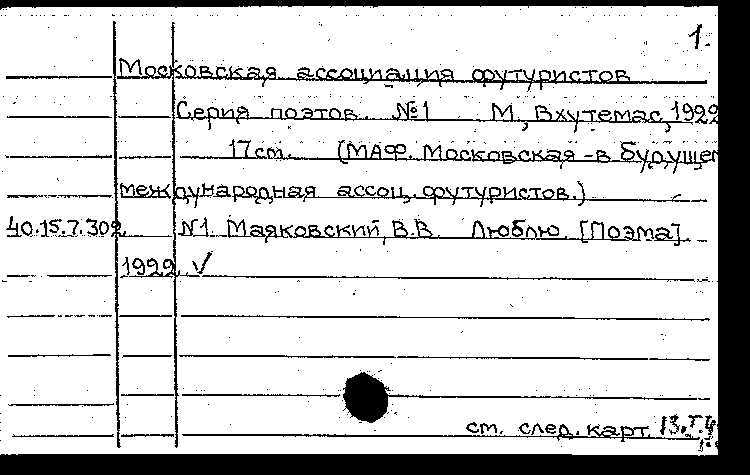 1.
Московская ассоциация футуристов
Серия поэтов. №1 М., Вхутемас, 1922
17см. (МАФ. Московская - в будущем
международная ассоц. футуристов.)
40.15.7.302. №1. Маяковский, В.В. Люблю. [Поэма].
1922. √
см. след. карт.